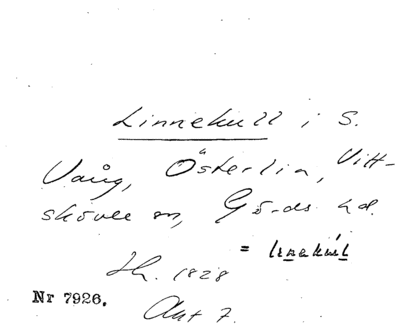 Linnekull i S.
Vång, Österlin, Vitt-
skövle sn, Gärds hd.
= linekúl
Sk. 1828
Akt 7.
Nr 7926.